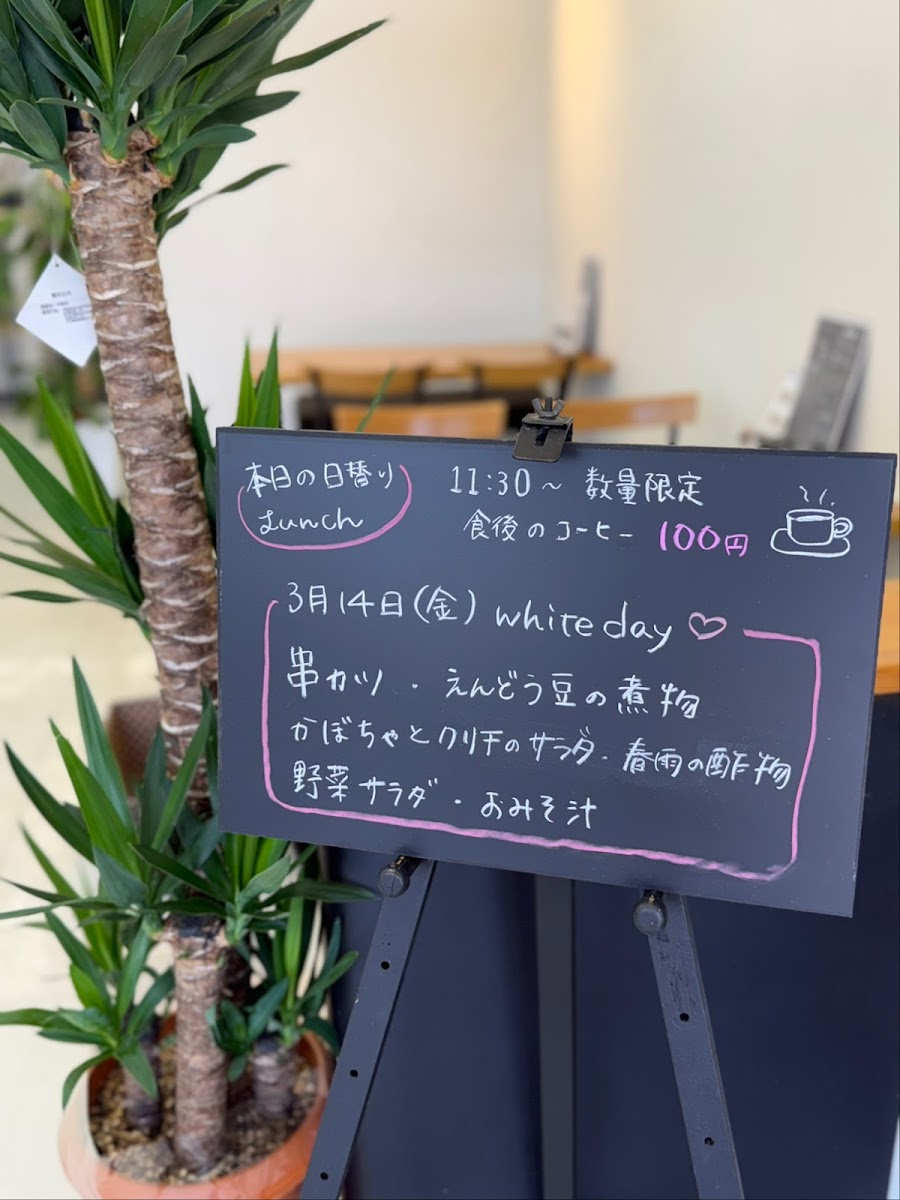 本日の日替り
Lunch
11:30～ 数量限定
食後のコーヒー 100円
3月14日(金) white day ♡
串カツ ・ えんどう豆の煮物
かぼちゃとクリチのサラダ ・ 春雨の酢物
野菜サラダ ・ おみそ汁